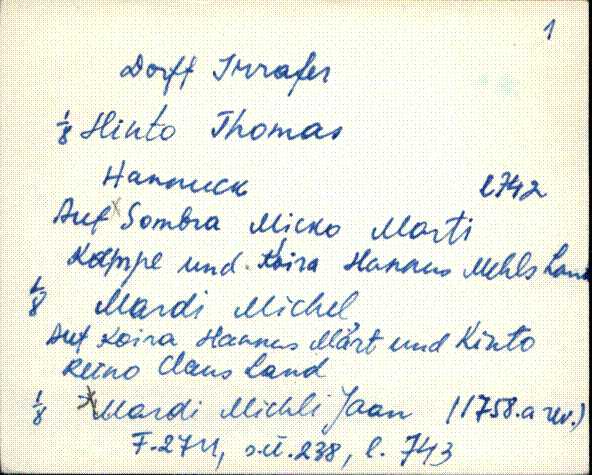 1
Dorff Irrafer
1/8 Hinto Thomas
Hannuck l742
Auf Sombra Micko Marti
und Koira Hannus Mehls Land
1/8 Mardi Michel
Auf Koira Hannus Märt und Kinto
Reino Claus Land
1/8 Mardi Michli Jaan (1758. a rev.)
F. 2711, s.ü. 238, l. 743